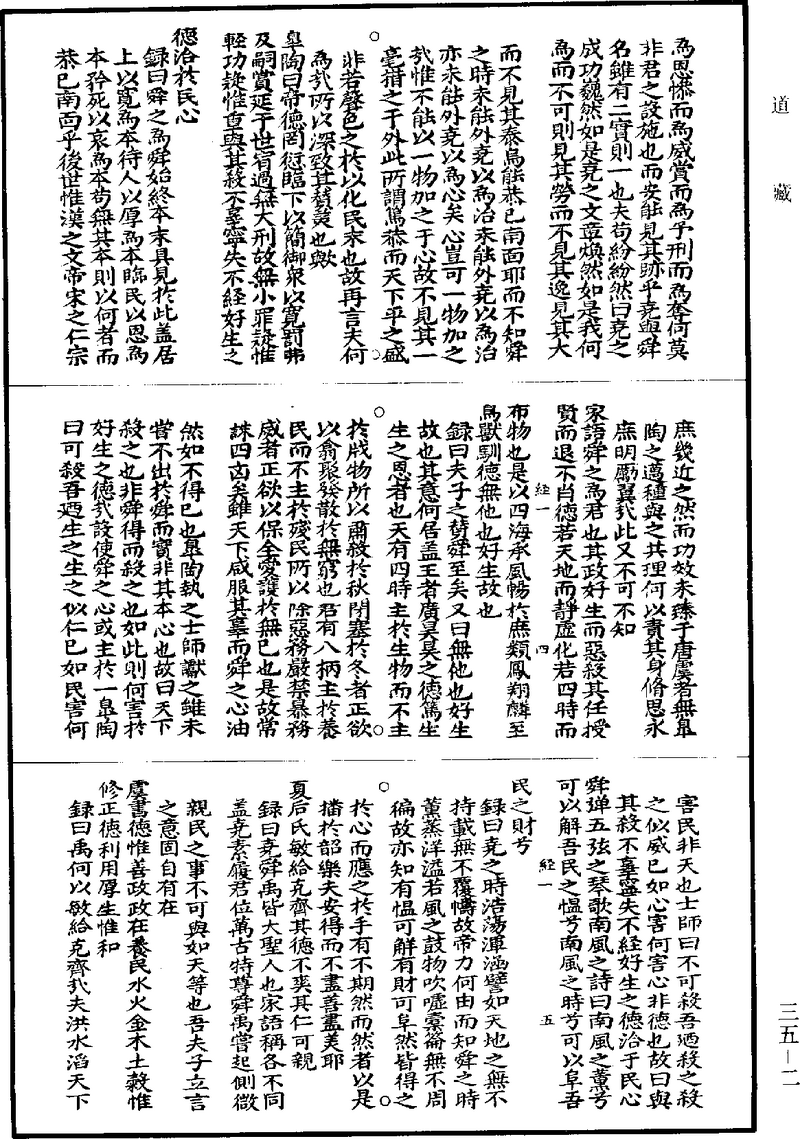 道藏
為恩慘而為威賞而為予刑而為奪何莫
非君之設施也而安能見其跡乎堯與舜
名雖有二實則一也夫苟紛紛然曰堯之
成功巍然如是堯之文章煥然如是我何
為而不可則見其勞而不見其逸見其大
而不見其泰烏能恭已南面耶而不知舜
之時未能外堯以為治未能外堯以為治
亦未能外堯以為心矣心豈可一物加之
哉惟不能以一物加之于心故不見其一
毫措之于外此所謂篤恭而天下平之盛
非若聲色之於以化民末也故再言夫何
為哉所以深致其贊美也歟
臯陶曰帝德罔愆臨下以簡御衆以寬罰弗
及嗣賞延于世宥過無大刑故無小罪疑惟
輕功疑惟重與其殺不辜寧失不經好生之
德洽於民心
錄曰舜之為舜始終本末具見於此蓋居
上以寬為本待人以厚為本臨民以恩為
本矜死以哀為本苟無其本則以何者而
恭已南面乎後世惟漢之文帝宋之仁宗
庶幾近之然而功效未臻于唐虞者無臯
陶之邁種與之共理何以責其身脩思永
庶明勵翼哉此又不可不知
家語舜之為君也其政好生而惡殺其任授
賢而退不肖德若天地而靜虛化若四時而
經一
四
布物也是以四海承風暢於庶類鳳翔麟至
鳥獸馴德無他也好生故也
錄曰夫子之贊舜至矣又曰無他也好生
故也其意何居蓋王者廣昊昊之德篤生
生之恩者也天有四時主於生物而不主
於戕物所以肅殺於秋閉塞於冬者正欲
以翕聚發散於無窮也君有八柄主於養
民而不主於殘民所以除惡務嚴禁暴務
威者正欲以保全愛護於無已也是故常
誅四凶矣雖天下咸服其辜而舜之心油
然如不得已也臯陶執之士師讞之雖未
嘗不出於舜而實非其本心也故曰天下
殺之也非舜得而殺之也如此則何害於
好生之德哉設使舜之心或主於一臯陶
曰可殺吾迺生之生之似仁已如民害何
害民非天也士師曰不可殺吾迺殺之殺
之似威已如心害何害心非德也故曰與
其殺不辜寧失不經好生之德洽于民心
舜彈五弦之琴歌南風之詩曰南風之薰兮
可以解吾民之慍兮南風之時兮可以阜吾
經一
五
民之財兮
錄曰堯之時浩蕩渾涵譬如天地之無不
持載無不覆幬故帝力何由而知舜之時
薰蒸洋溢若風之鼓物吹噓槖籥無不周
徧故亦知有慍可解有財可阜然皆得之
於心而應之於手有不期然而然者以是
播於韶樂夫安得而不盡善盡美耶
夏后氏敏給克齊其德不爽其仁可親
錄曰堯舜禹皆大聖人也家語稱各不同
蓋堯素履君位萬古特尊舜禹嘗起側微
親民之事不可與如天等也吾夫子立言
之意固自有在
虞書德惟善政政在養民水火金木土穀惟
修正德利用厚生惟和
錄曰禹何以敏給克齊哉夫洪水滔天下
三五-二